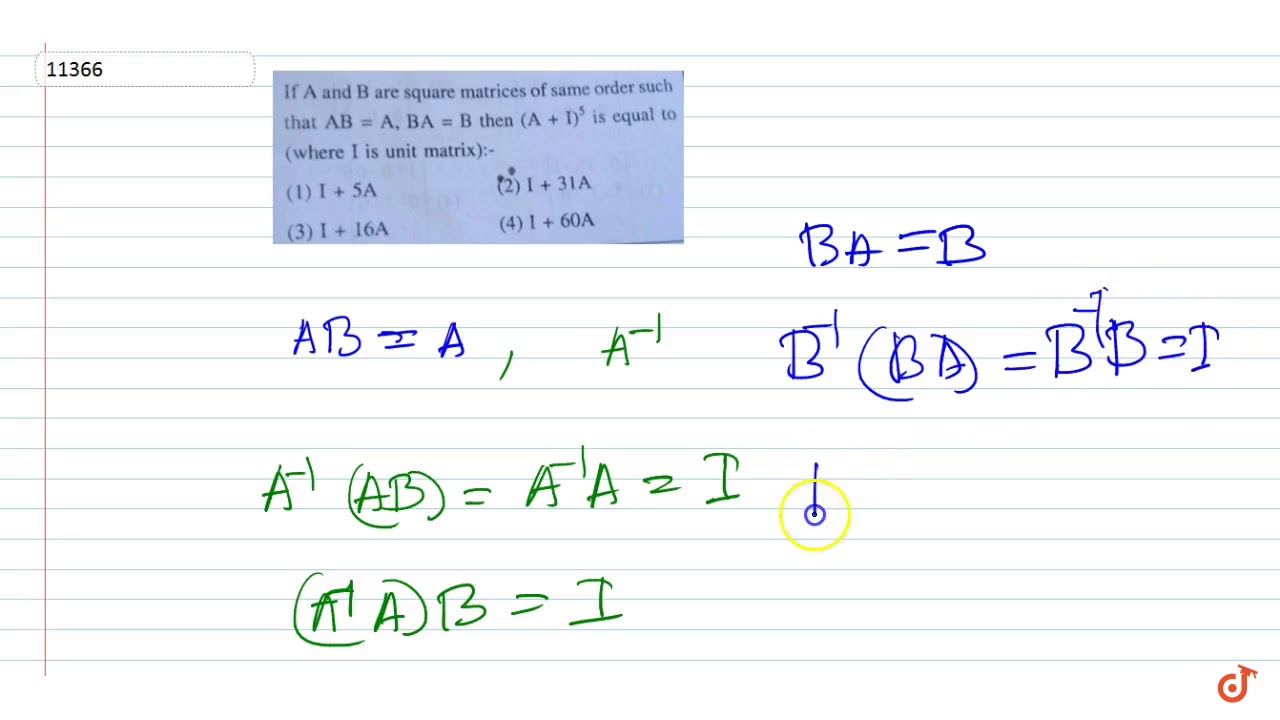 11366
If A and B are square matrices of same order such
that AB = A, BA = B then (A + I)⁵ is equal to
(where I is unit matrix):-
(1) I + 5A (2) I + 31A
(3) I + 16A (4) I + 60A
BA = B
AB = A , A⁻¹
B⁻¹ (BA) = B⁻¹B = I
A⁻¹ (AB) = A⁻¹A = I
(A⁻¹ A) B = I